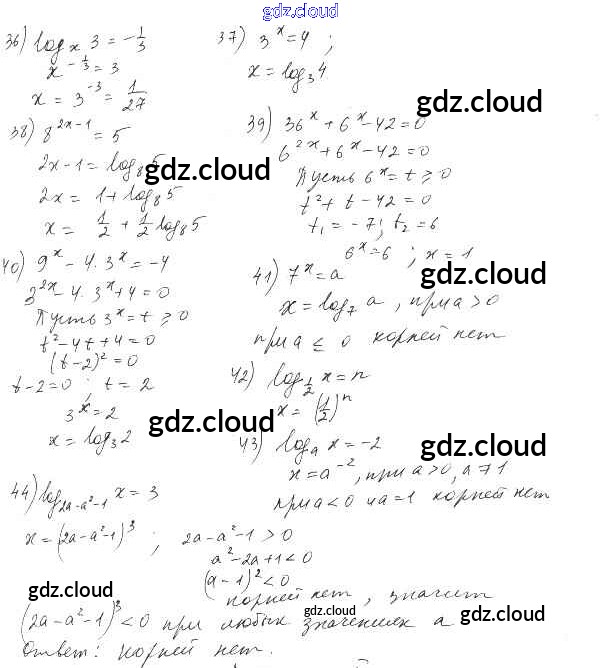 gdz.cloud
36) log_x 3 = -1/3
x^(-1/3) = 3
x = 3^(-3) = 1/27
37) 3^x = 4 ;
x = log_3 4
38) 8^(2x-1) = 5
2x-1 = log_8 5
2x = 1 + log_8 5
x = 1/2 + 1/2 log_8 5
gdz.cloud
gdz.cloud
39) 36^x + 6^x - 42 = 0
6^(2x) + 6^x - 42 = 0
Пусть 6^x = t ⩾ 0
t^2 + t - 42 = 0
t_1 = -7; t_2 = 6
6^x = 6 ; x = 1
gdz.cloud
40) 9^x - 4·3^x = -4
3^(2x) - 4·3^x + 4 = 0
Пусть 3^x = t ⩾ 0
t^2 - 4t + 4 = 0
(t-2)^2 = 0
t-2 = 0 ; t = 2
3^x = 2
x = log_3 2
gdz.cloud
gdz.cloud
41) 7^x = a
x = log_7 a , при a > 0
при a ≤ 0 корней нет
42) log_(1/2) x = n
x = (1/2)^n
gdz.cloud
43) log_a x = -2
x = a^(-2), при a > 0, a ≠ 1
при a < 0 и a = 1 корней нет
gdz.cloud
44) log_(2a-a^2-1) x = 3
x = (2a-a^2-1)^3 ; 2a-a^2-1 > 0
a^2-2a+1 < 0
(a-1)^2 < 0
корней нет, значит
(2a-a^2-1)^3 < 0 при любых значениях a
Ответ: корней нет.
gdz.cloud
gdz.cloud
gdz.cloud
gdz.cloud